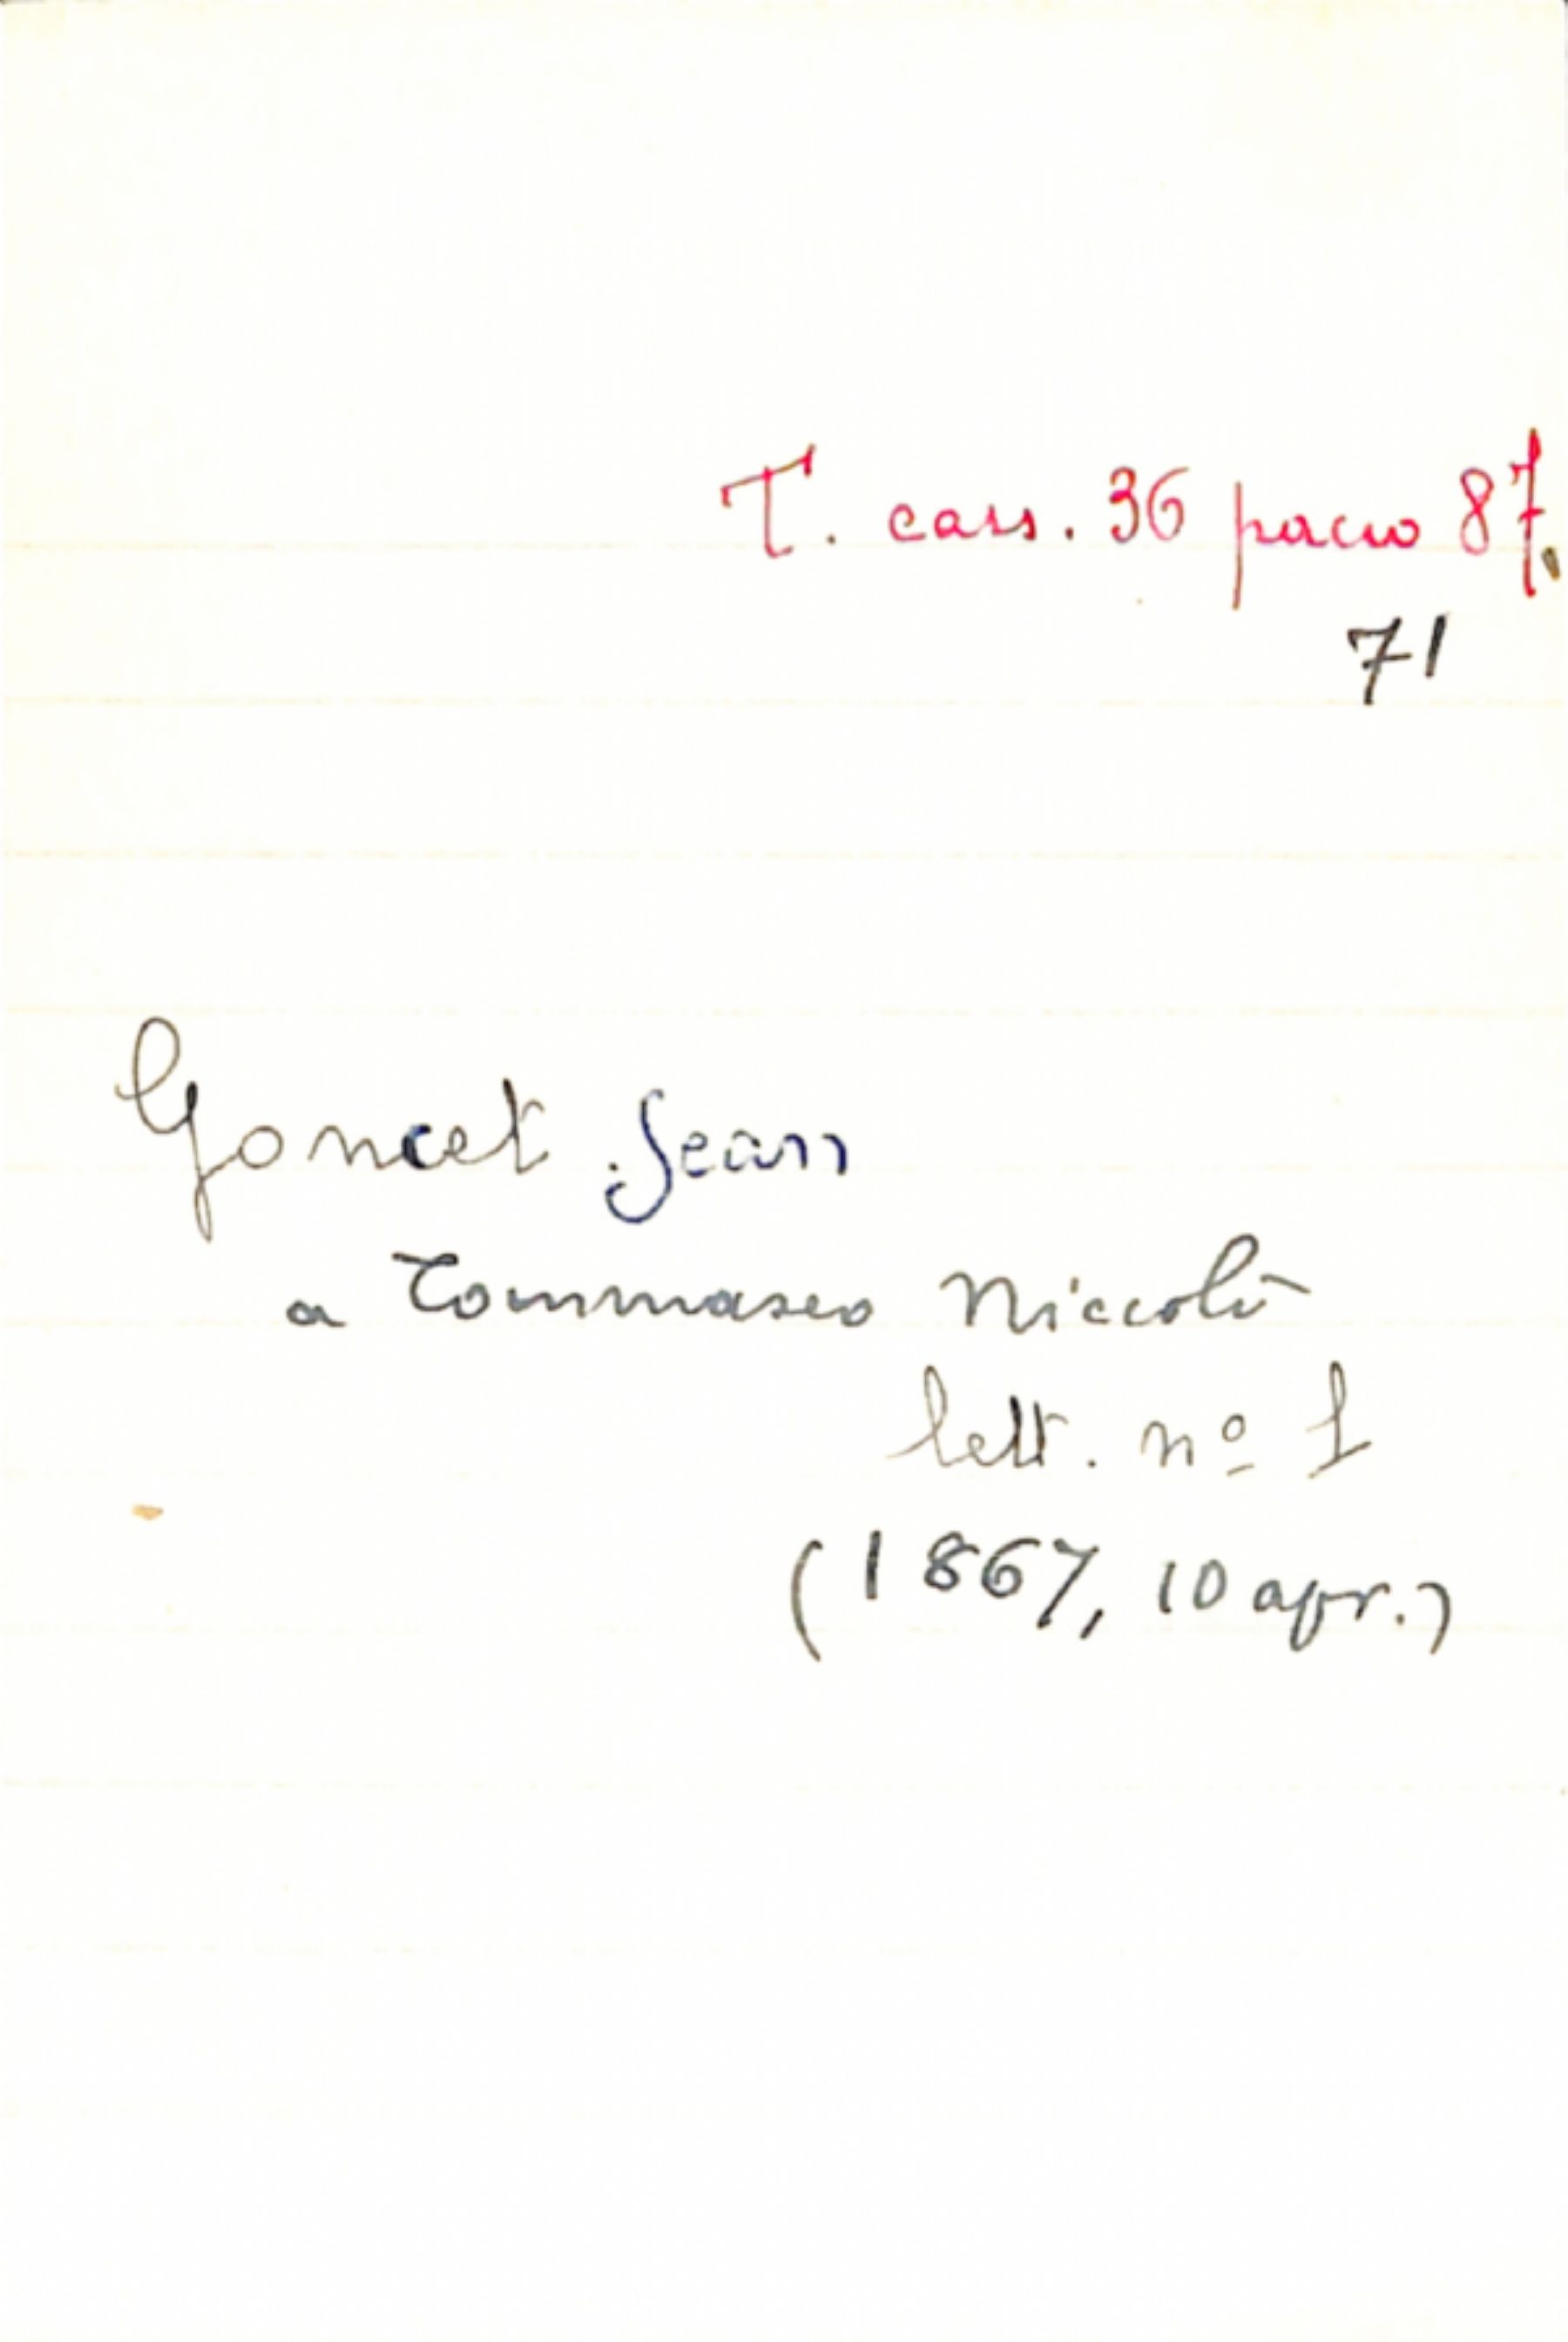 T. cass. 36 pacco 87.
71
Goncet Jean
a Tommaseo Niccolò
lett. nº 1
(1867, 10 apr.)